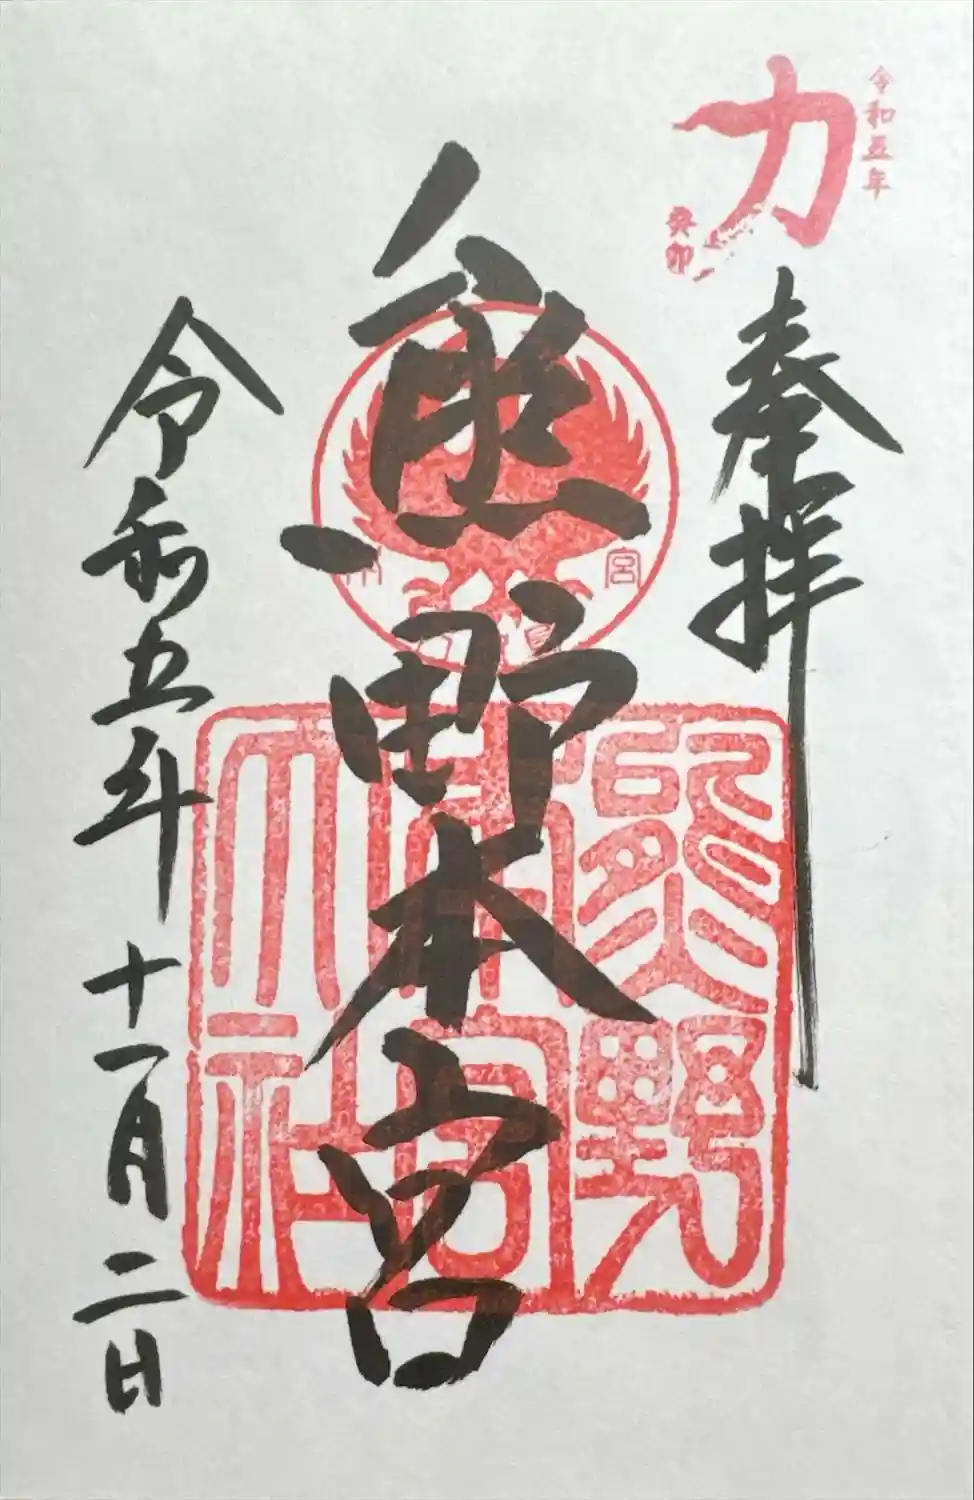 令和五年
力
癸卯
奉拝
熊野本宮
熊野
本宮
大社
令和五年十一月二日